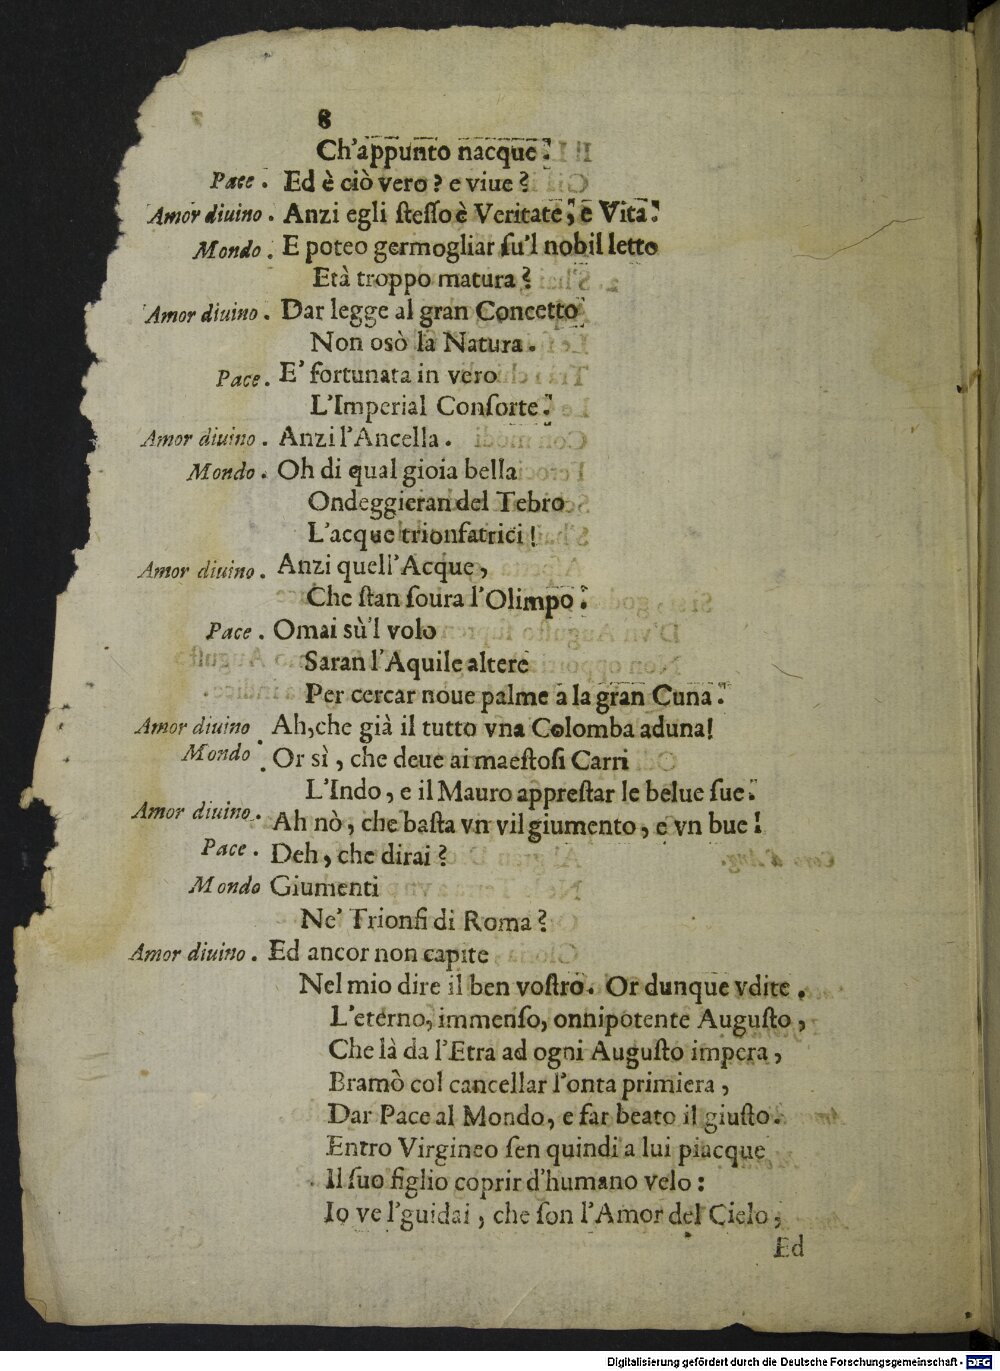 8
Ch'appunto nacque.
Pace. Ed è ciò vero? e viue?
Amor diuino. Anzi egli ſteſſo è Veritate, e Vita.
Mondo. E poteo germogliar ſu'l nobil letto
Età troppo matura?
Amor diuino. Dar legge al gran Concetto
Non osò la Natura.
Pace. E' fortunata in vero
L'Imperial Conſorte.
Amor diuino. Anzi l'Ancella.
Mondo. Oh di qual gioia bella
Ondeggieran del Tebro
L'acque trionfatrici!
Amor diuino. Anzi quell'Acque,
Che ſtan ſoura l'Olimpo.
Pace. Omai sù'l volo
Saran l'Aquile altere
Per cercar noue palme a la gran Cuna.
Amor diuino. Ah,che già il tutto vna Colomba aduna!
Mondo. Or sì, che deue ai maeſtoſi Carri
L'Indo, e il Mauro appreſtar le belue ſue.
Amor diuino. Ah nò, che baſta vn vil giumento, e vn bue!
Pace. Deh, che dirai?
Mondo Giumenti
Ne' Trionfi di Roma?
Amor diuino. Ed ancor non capite
Nel mio dire il ben voſtro. Or dunque vdite.
L'eterno, immenſo, onnipotente Auguſto,
Che là da l'Etra ad ogni Auguſto impera,
Bramò col cancellar l'onta primiera,
Dar Pace al Mondo, e far beato il giuſto.
Entro Virgineo ſen quindi a lui piacque
Il ſuo figlio coprir d'humano velo:
Io ve l'guidai, che ſon l'Amor del Cielo,
Ed
Digitalisierung gefördert durch die Deutsche Forschungsgemeinschaft - DFG